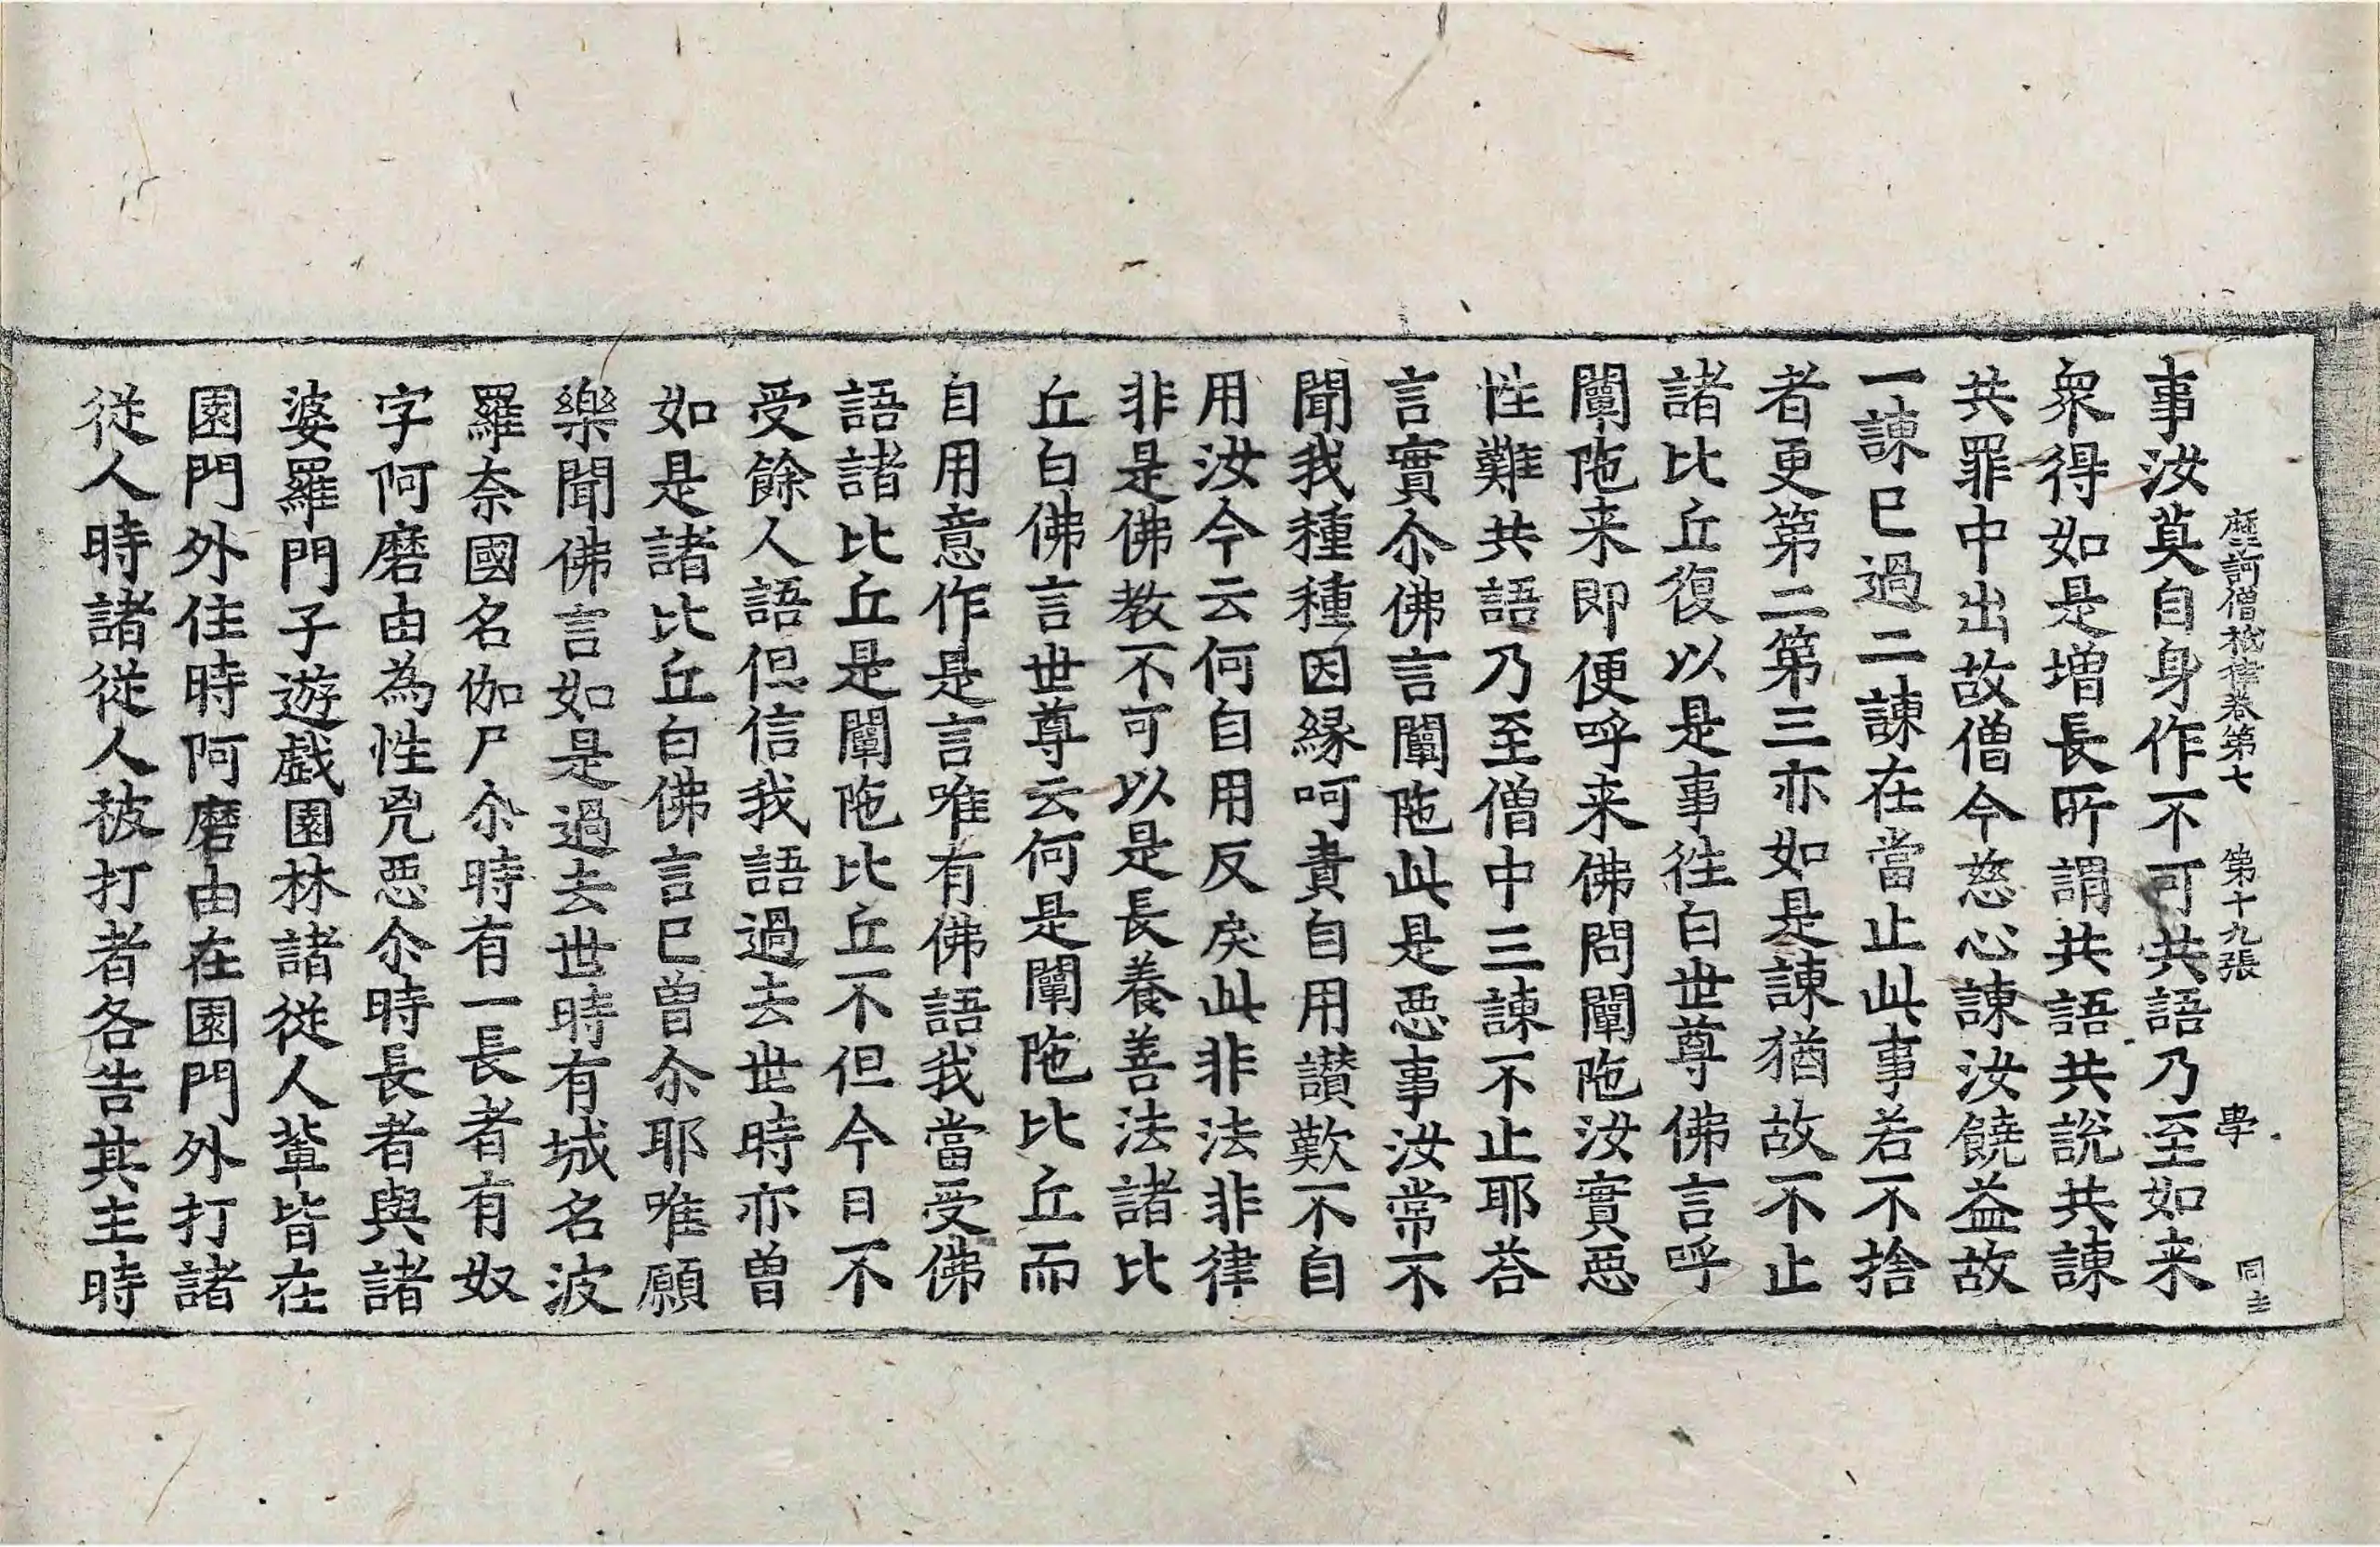 摩訶僧祇律卷第七 第十九張 學
事汝莫自身作不可共語乃至如来
衆得如是增長所謂共語共說共諫
共罪中出故僧今慈心諫汝饒益故
一諫已過二諫在當止此事若不捨
者更第二第三亦如是諫猶故不止
諸比丘復以是事往白世尊佛言呼
闡陁来即便呼来佛問闡陁汝實惡
性難共語乃至僧中三諫不止耶荅
言實尒佛言闡陁此是惡事汝常不
聞我種種因縁呵責自用讃歎不自
用汝今云何自用反戾此非法非律
非是佛教不可以是長養善法諸比
丘白佛言世尊云何是闡陁比丘而
自用意作是言唯有佛語我當受佛
語諸比丘是闡陁比丘不但今日不
受餘人語但信我語過去世時亦曽
如是諸比丘白佛言已曽尒耶唯願
樂聞佛言如是過去世時有城名波
羅奈國名伽尸尒時有一長者有奴
字阿磨由為性兇惡尒時長者與諸
婆羅門子遊戲園林諸從人輩皆在
園門外住時阿磨由在園門外打諸
從人時諸從人被打者各告其主時